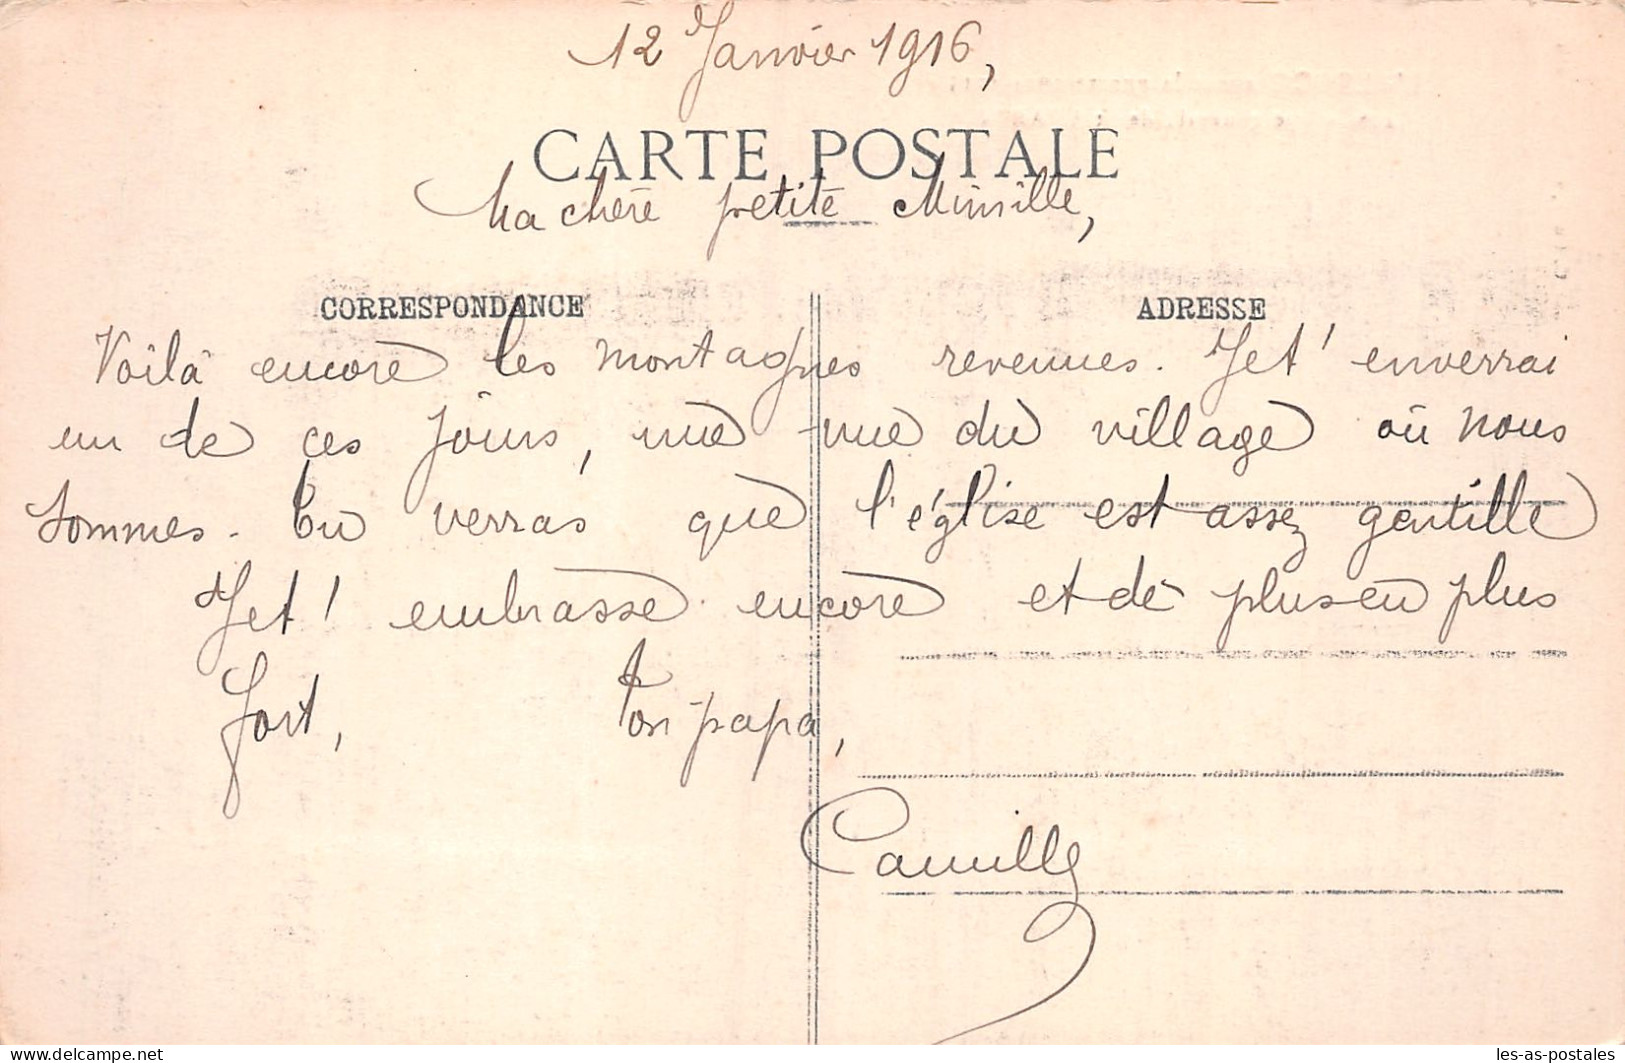 12 Janvier 1916,
CARTE POSTALE
Ma chère petite Mimille,
CORRESPONDANCE
ADRESSE
Voilà encore les montagnes revenues. Je t'enverrai
un de ces jours, une vue du village où nous
sommes. Tu verras que l'église est assez gentille
Je t'embrasse encore et de plus en plus
fort, Ton papa,
Camille
les-as-postales